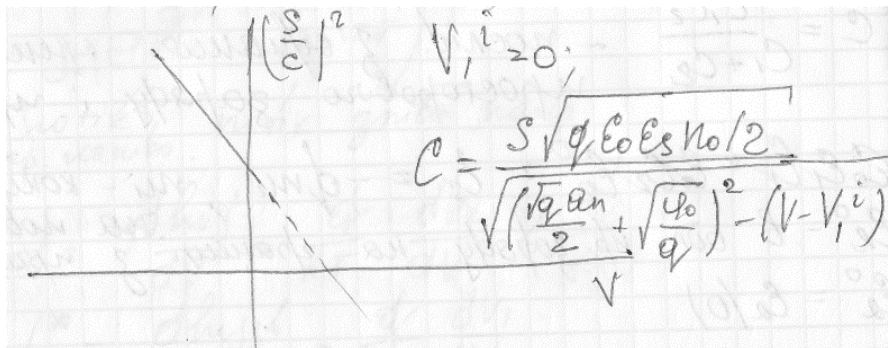 (S/C)² V₁ⁱ = 0;
C = S√(qε₀εₛn₀/2) / √((√q aₙ/2 + √(φ₀/q))² - (V - V₁ⁱ))
V